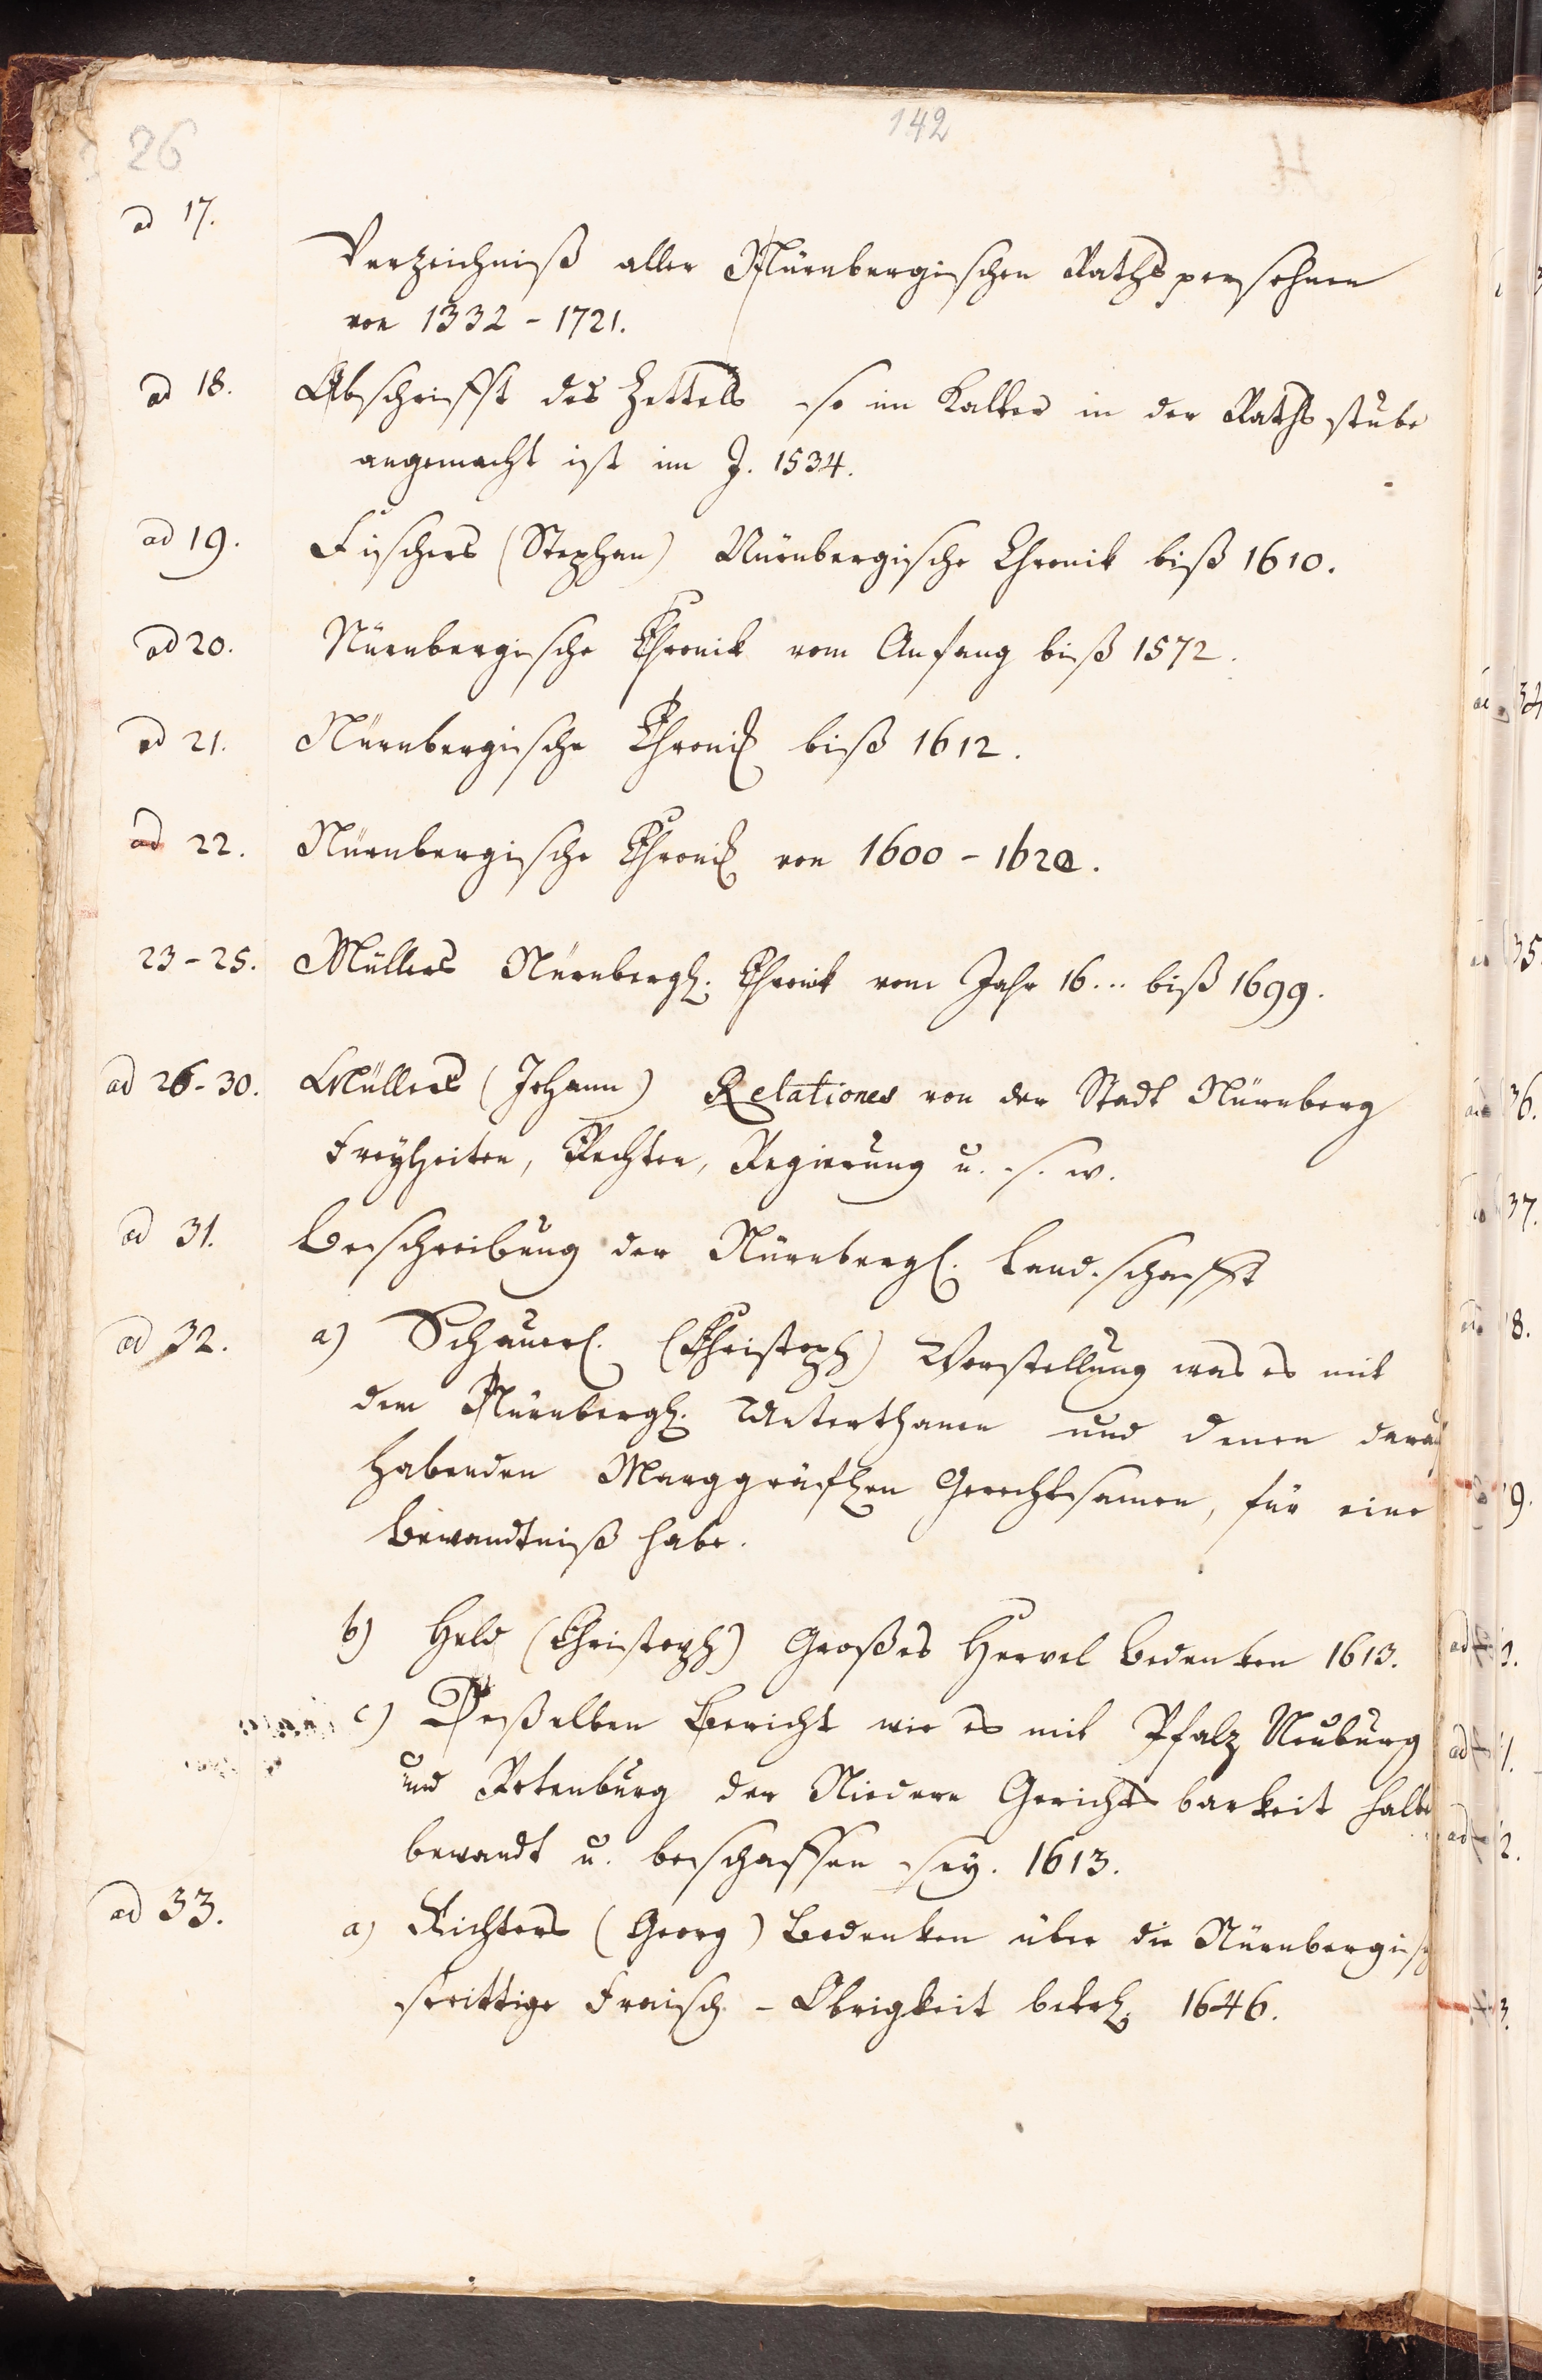 26
142
ad 17.
Verzeichniß aller Nürnbergischen Rathspersohnen
von 1332 - 1721.
ad 18. Abschrifft des Zettels so im Kalter in der Rathsstube
angemacht ist im J. 1534.
ad 19. Fischers (Stephan) Nürnbergische Chronik biß 1610.
ad 20. Nürnbergische Chronik vom Anfang biß 1572.
ad 21. Nürnbergische Chronick biß 1612.
ad 22. Nürnbergische Chronick von 1600 - 1620.
23-25. Müllers Nürnbergl. Chronik vom Jahr 16... biß 1699.
ad 26-30. Müllers (Johann) Relationes von der Stadt Nürnberg
Freyheiten, Rechten, Regierung u. s. w.
ad 31. Beschreibung der Nürnbergl. Landschafft
ad 32. a) Scheuerl. (Christoph) Vorstellung was es mit
den Nürnbergl. Unterthanen und denen darauf
habenden Marggräflen Gerechtsamen, für eine
Bewandtniß habe.
b) Held (Christoph) Großes Bedenken 1613.
c) Deßelben Bericht wie es mit Pfalz Neuburg
und Rotenburg der Niedern Gerichtsbarkeit halben
bewandt u. beschaffen sey. 1613.
ad 33. a) Richters (Georg) Bedenken über die Nürnbergisch
strittige Fraisch - Obrigkeit betrl. 1646.